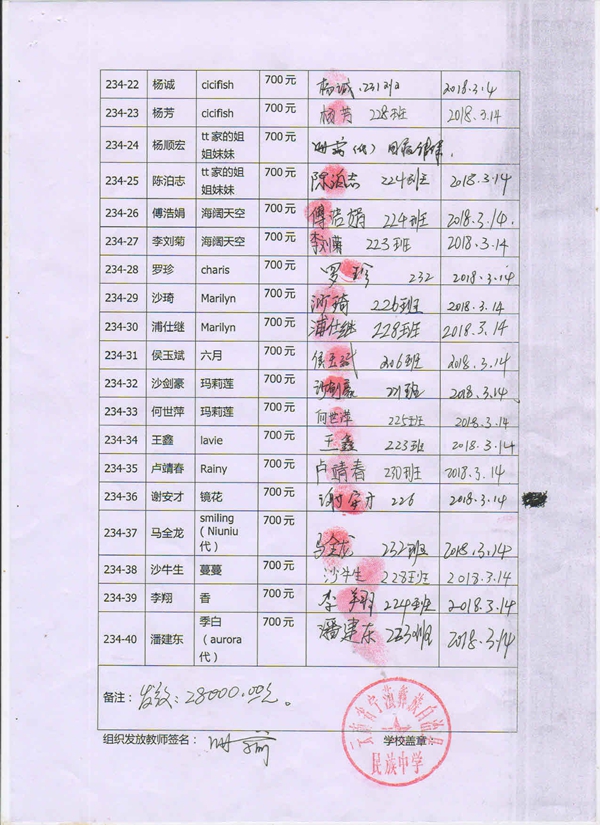 234-22 杨诚 cicifish 700元 杨诚 231班 2018.3.14
234-23 杨芳 cicifish 700元 杨芳 228班 2018.3.14
234-24 杨顺宏 tt家的姐姐妹妹 700元
234-25 陈泊志 tt家的姐姐妹妹 700元 陈泊志 224班 2018.3.14
234-26 傅浩娟 海阔天空 700元 傅浩娟 224班 2018.3.14.
234-27 李刘菊 海阔天空 700元 李刘菊 223班 2018.3.14
234-28 罗珍 charis 700元 罗珍 232 2018.3.14
234-29 沙琦 Marilyn 700元 沙琦 226班 2018.3.14
234-30 浦仕继 Marilyn 700元 浦仕继 228班 2018.3.14
234-31 侯玉斌 六月 700元 侯玉斌 206班 2018.3.14
234-32 沙剑豪 玛莉莲 700元 沙剑豪 2018.3.14
234-33 何世萍 玛莉莲 700元 何世萍 225班 2018.3.14
234-34 王鑫 lavie 700元 王鑫 223班 2018.3.14
234-35 卢靖春 Rainy 700元 卢靖春 230班 2018.3.14
234-36 谢安才 镜花 700元 谢安才 226 2018.3.14
234-37 马全龙 smiling（Niuniu代） 700元 马全龙 232班 2018.3.14
234-38 沙牛生 蔓蔓 700元 沙牛生 228班 2018.3.14
234-39 李翔 香 700元 李翔 224班 2018.3.14
234-40 潘建东 季白（aurora代） 700元 潘建东 223班 2018.3.14
备注： 发放：28000.00元。
组织发放教师签名： 学校盖章
云南省宁蒗彝族自治县
民族中学